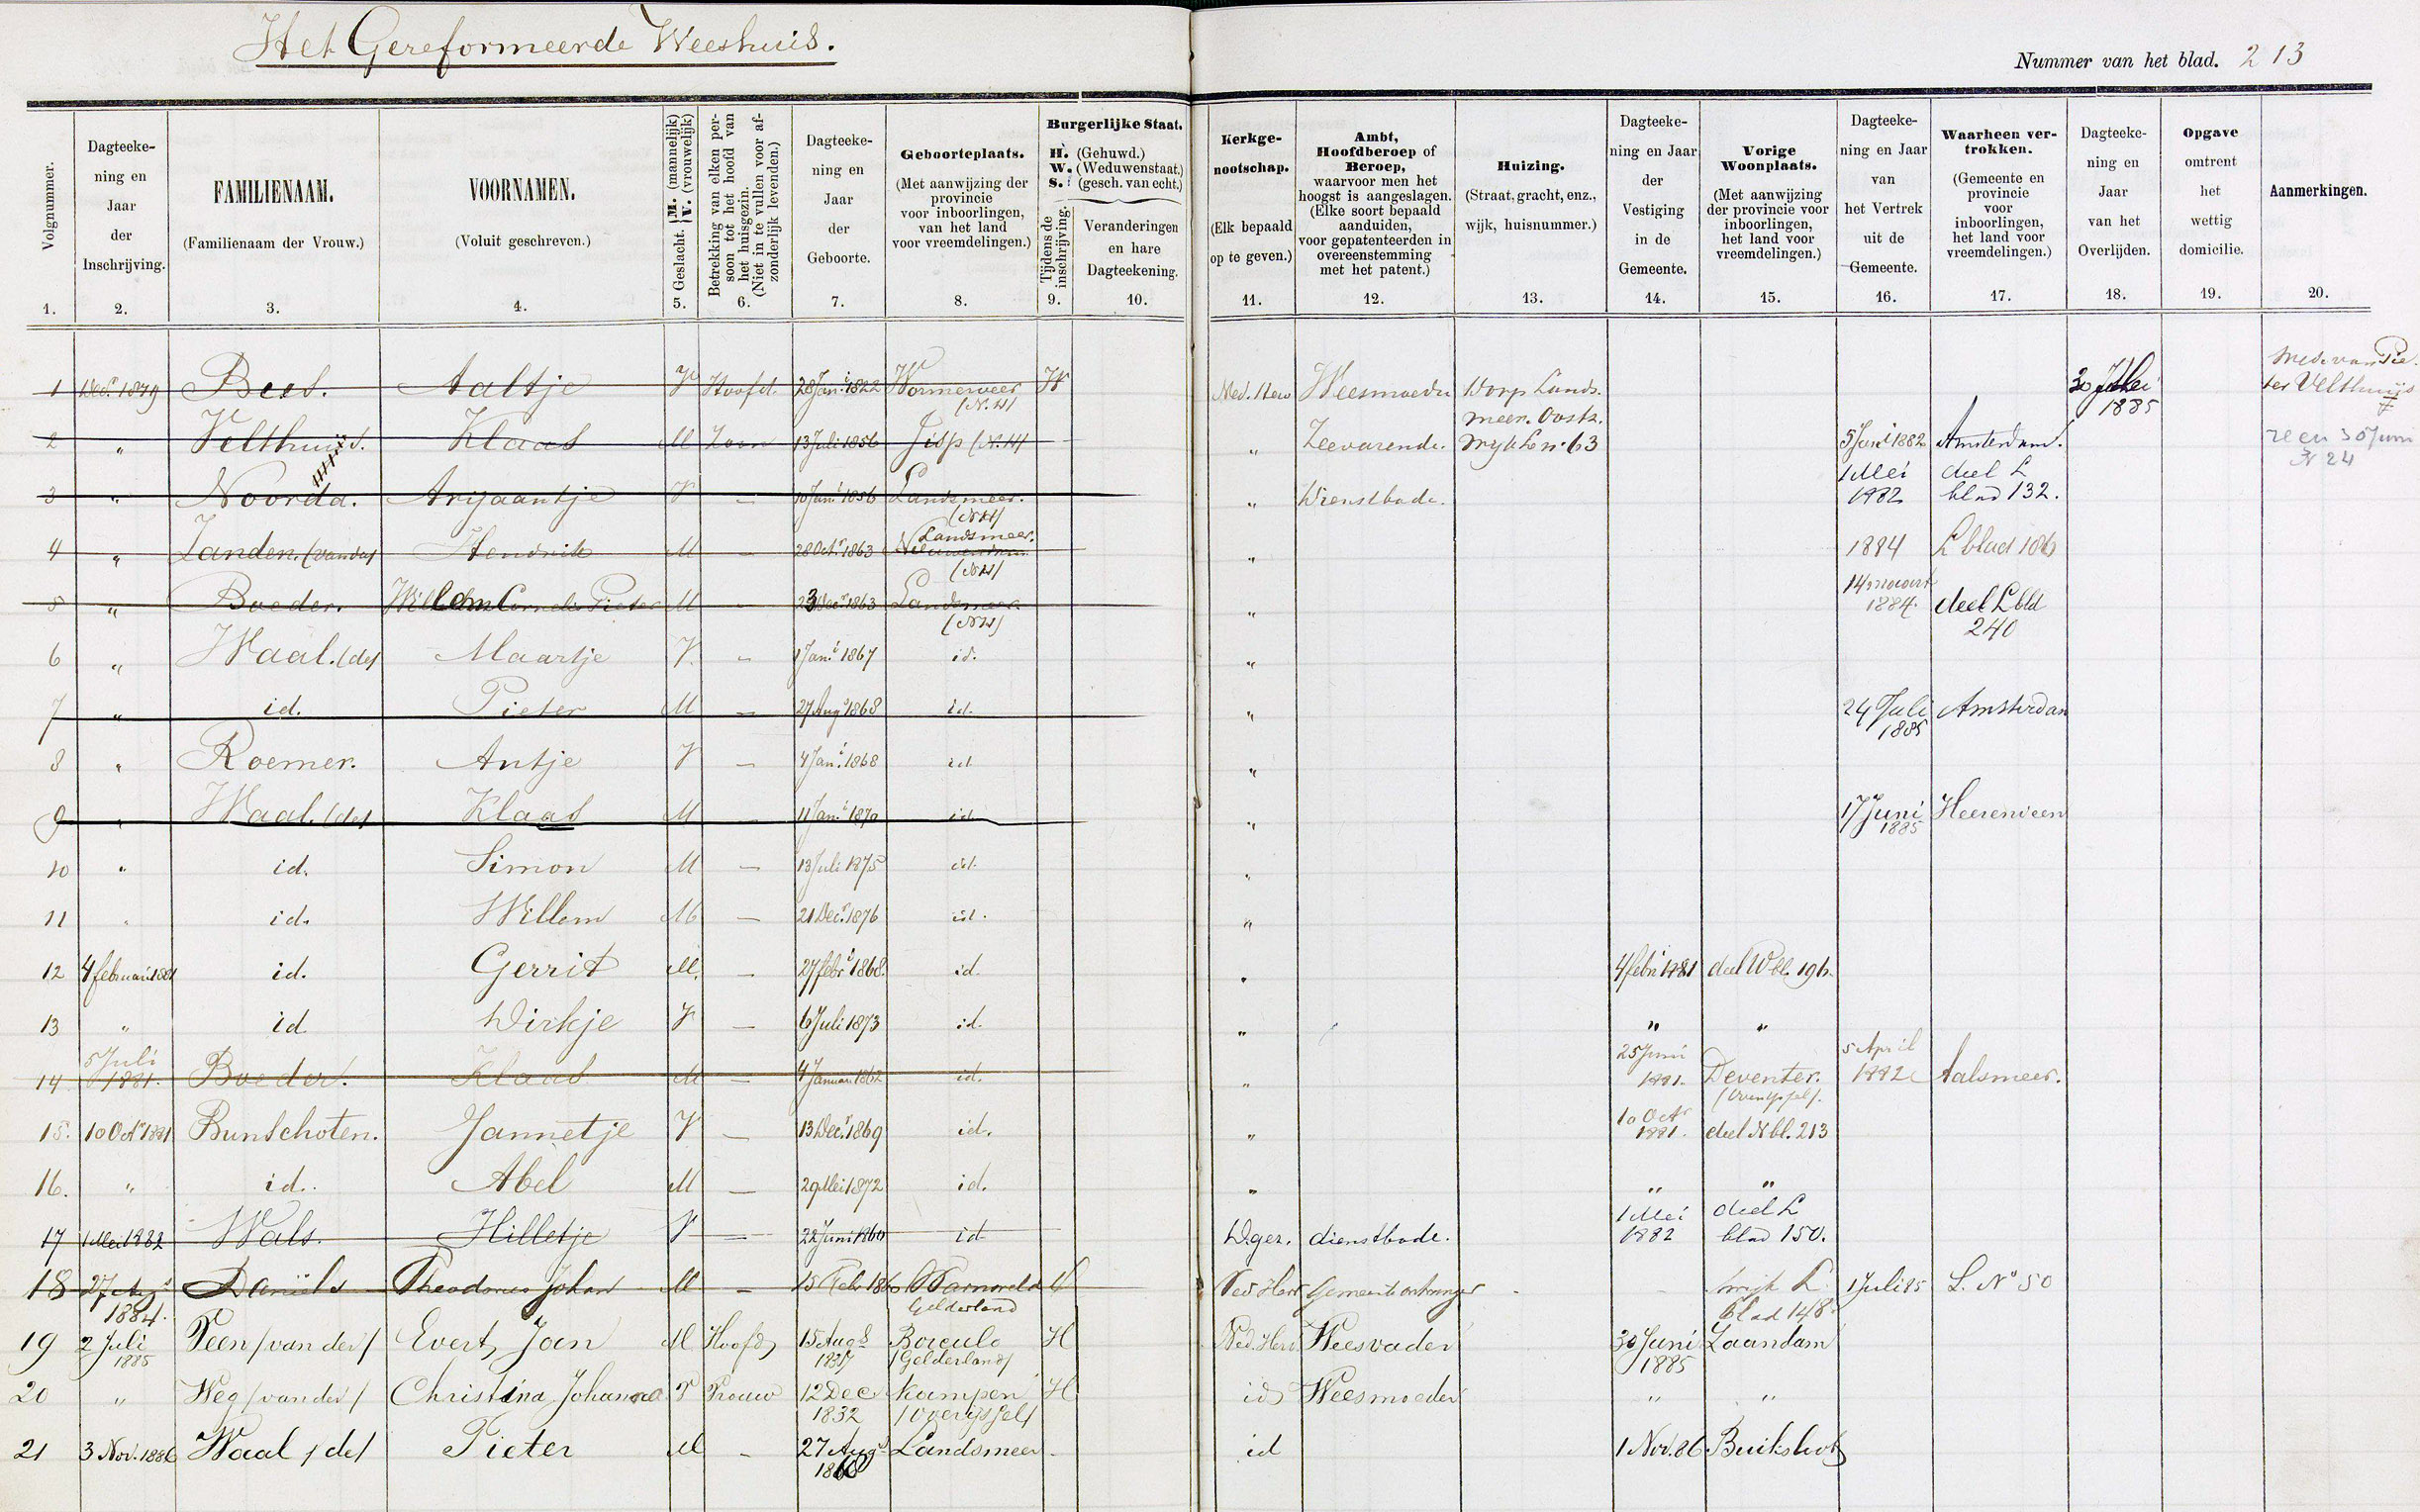 Het Gereformeerde Weeshuis.
Nummer van het blad. 213
Volgnummer. 1.
Dagteeke-
ning en
Jaar
der
Inschrijving.
2.
FAMILIENAAM.
(Familienaam der Vrouw.)
3.
VOORNAMEN.
(Voluit geschreven.)
4.
Geslacht. M. (mannelijk) V. (vrouwelijk)
5.
Betrekking van elken per-
soon tot het hoofd van
het huisgezin.
(Niet in te vullen voor af-
zonderlijk levenden.)
6.
Dagteeke-
ning en
Jaar
der
Geboorte.
7.
Geboorteplaats.
(Met aanwijzing der
provincie
voor inboorlingen,
van het land
voor vreemdelingen.)
8.
Burgerlijke Staat.
H. (Gehuwd.)
W. (Weduwenstaat.)
S. (gesch. van echt.)
Tijdens de
inschrijving.
9.
Veranderingen
en hare
Dagteekening.
10.
Kerkge-
nootschap.
(Elk bepaald
op te geven.)
11.
Ambt,
Hoofdberoep of
Beroep,
waarvoor men het
hoogst is aangeslagen.
(Elke soort bepaald
aanduiden,
voor gepatenteerden in
overeenstemming
met het patent.)
12.
Huizing.
(Straat, gracht, enz.,
wijk, huisnummer.)
13.
Dagteeke-
ning en Jaar
der
Vestiging
in de
Gemeente.
14.
Vorige
Woonplaats.
(Met aanwijzing
der provincie voor
inboorlingen,
het land voor
vreemdelingen.)
15.
Dagteeke-
ning en Jaar
van
het Vertrek
uit de
Gemeente.
16.
Waarheen ver-
trokken.
(Gemeente en
provincie
voor
inboorlingen,
het land voor
vreemdelingen.)
17.
Dagteeke-
ning en
Jaar
van het
Overlijden.
18.
Opgave
omtrent
het
wettig
domicilie.
19.
Aanmerkingen.
20.
1 Decr. 1879 Bees. Aaltje V Hoofd 28 Jani 1822 Wormerveer (N.H) W Ned. Herv Weesmoeder Dorp Lands- 1885
meer. Oostz.
2 " Velthuijs. Klaas M Zoon 13 Juli 1856 Jisp (N.H) " Zeevarende. wijk L no 63 5 Juni 1882 Amsterdam.
3 " Noorda. Arijaantje V - 10 Jani 1856 Landsmeer. (NH) " Dienstbode. 1 Mei 1882 deel L blad 132.
4 " Zanden. (van der) Hendrik M - 28 Octr 1863 Landsmeer. (NH) " 1884 L blad 106
5 " Boeder. Willem Cornelis Pieter M - 23 Decr 1863 Landsmeer. (NH) " 14 maart 1884. deel L bld 240
6 " Waal. (de) Maartje V. - 1 Jani 1867 id. "
7 " id. Pieter M - 27 Augs 1868 id. " 24 Juli 1885 Amsterdam
8 " Roemer. Antje V - 4 Jani 1868 id "
9 " Waal. (de) Klaas M - 11 Jani 1870 id " 17 Juni 1885 Heerenveen
10 " id. Simon M - 13 Juli 1875 id. "
11 " id. Willem M - 21 Decr 1876 id. "
12 4 februari 1881 id. Gerrit M. - 27 febri 1868. id. " 4 febri 1881 deel W bl. 196.
13 " id Dirkje V - 6 Juli 1873 id. " " "
14 5 Juli 1881. Boeder. Klaas M - 4 Januari 1862 id. " 25 Juni 1881. Deventer. (Overijssel). 5 April 1882 Aalsmeer.
15. 10 Octr 1881 Bunschoten. Jannetje V - 13 Decr 1869 id. " 10 Octr 1881. deel N bl. 213
16. " id. Abel M - 29 Mei 1872 id. " " "
17 1 Mei 1882 Wals. Hilletje V - 22 Juni 1860 id D.gez. dienstbode. 1 Mei 1882 deel L blad 150.
18 27 Augs 1884. Daniëls Theodorus Johan M - 15 Febr 1860 Barneveld Gelderland Ned Herv Gemeenteontvanger wijk L blad 148 1 Juli 85 L. No 50
19 2 Juli 1885 Veen (van der) Evert Jan M Hoofd 15 Augs Borculo (Gelderland) H Ned. Herv Weesvader 30 Juni 1885 Zaandam
20 " Weg (van der) Christina Johanna V Vrouw 12 Dec 1832 Kampen (Overijssel) H id Weesmoeder " "
21 3 Nov. 1886 Waal (de) Pieter M - 27 Augs 1868 Landsmeer - id 1 Nov. 86 Buiksloot